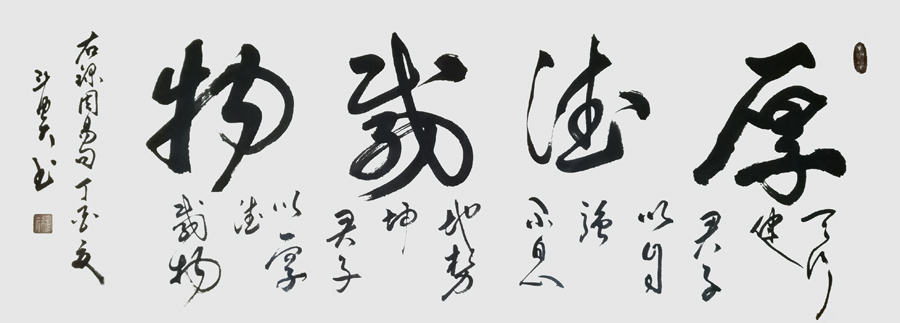 厚德載物
天行
健
君子
以自
強
不息
地勢
坤
君子
以厚
德
載物
右錄周易句丁酉夏